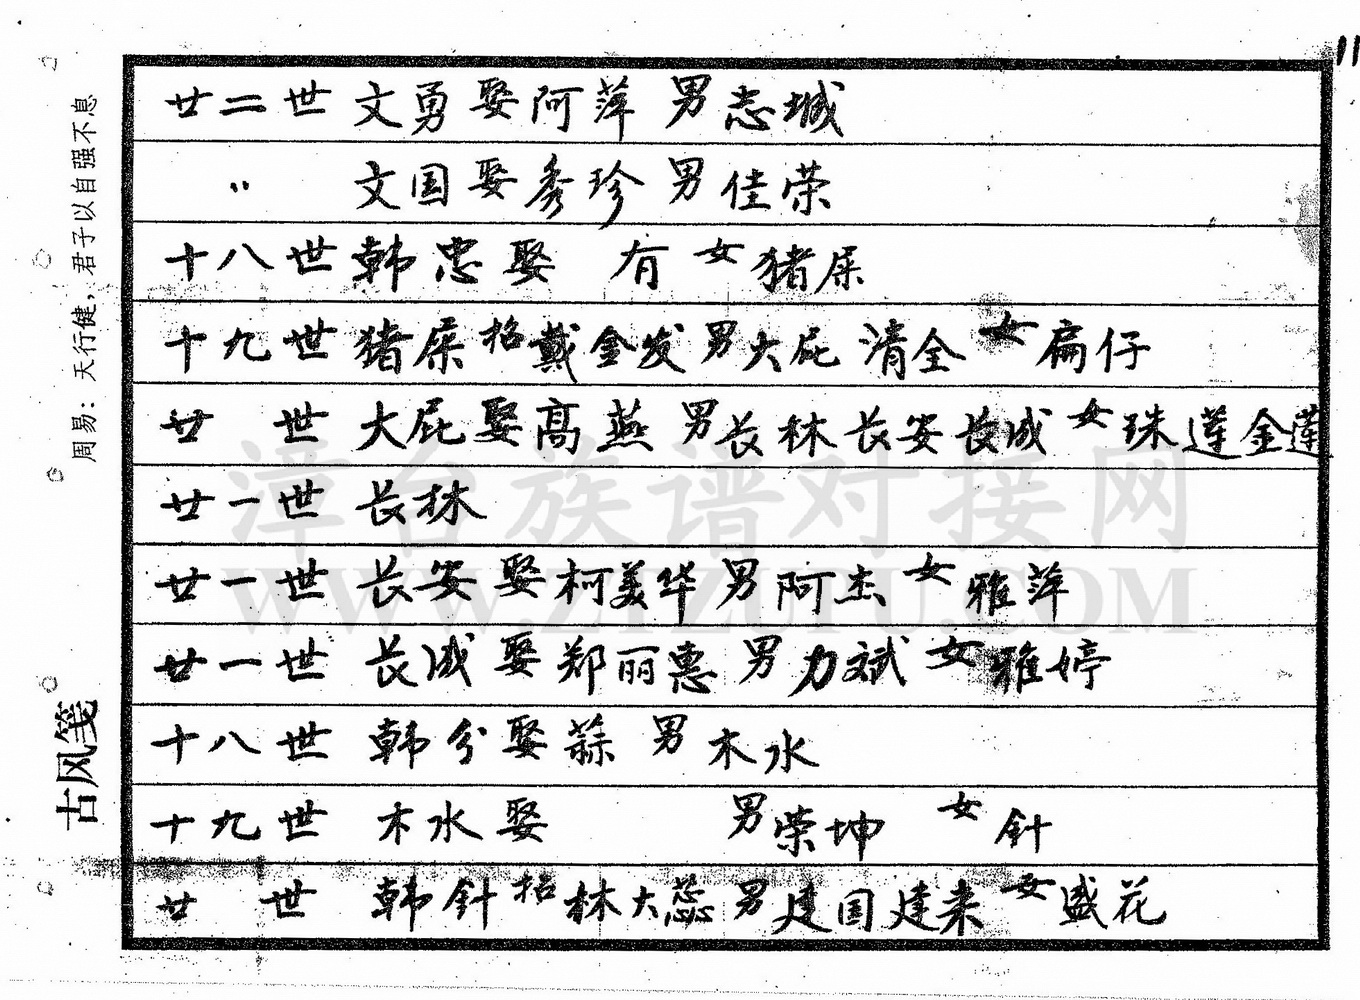 11
廿二世 文勇 娶 阿萍 男 志城
〃 文国 娶 秀珍 男 佳荣
十八世 韩忠 娶 有 女 猪屎
十九世 猪屎 招 戴金发 男 大屁 清全 女 扁仔
廿 世 大屁 娶 高燕 男 长林 长安 长成 女 珠莲 金莲
廿一世 长林
廿一世 长安 娶 柯美华 男 阿杰 女 雅萍
廿一世 长成 娶 郑丽惠 男 力斌 女 雅婷
十八世 韩分 娶 蒜 男 木水
十九世 木水 娶 男 荣坤 女 针
廿 世 韩针 招 林大蕊 男 建国 建来 女 盛花
周易：天行健，君子以自强不息
古风笺
漳台族谱对接网
WWW.ZTZUPU.COM